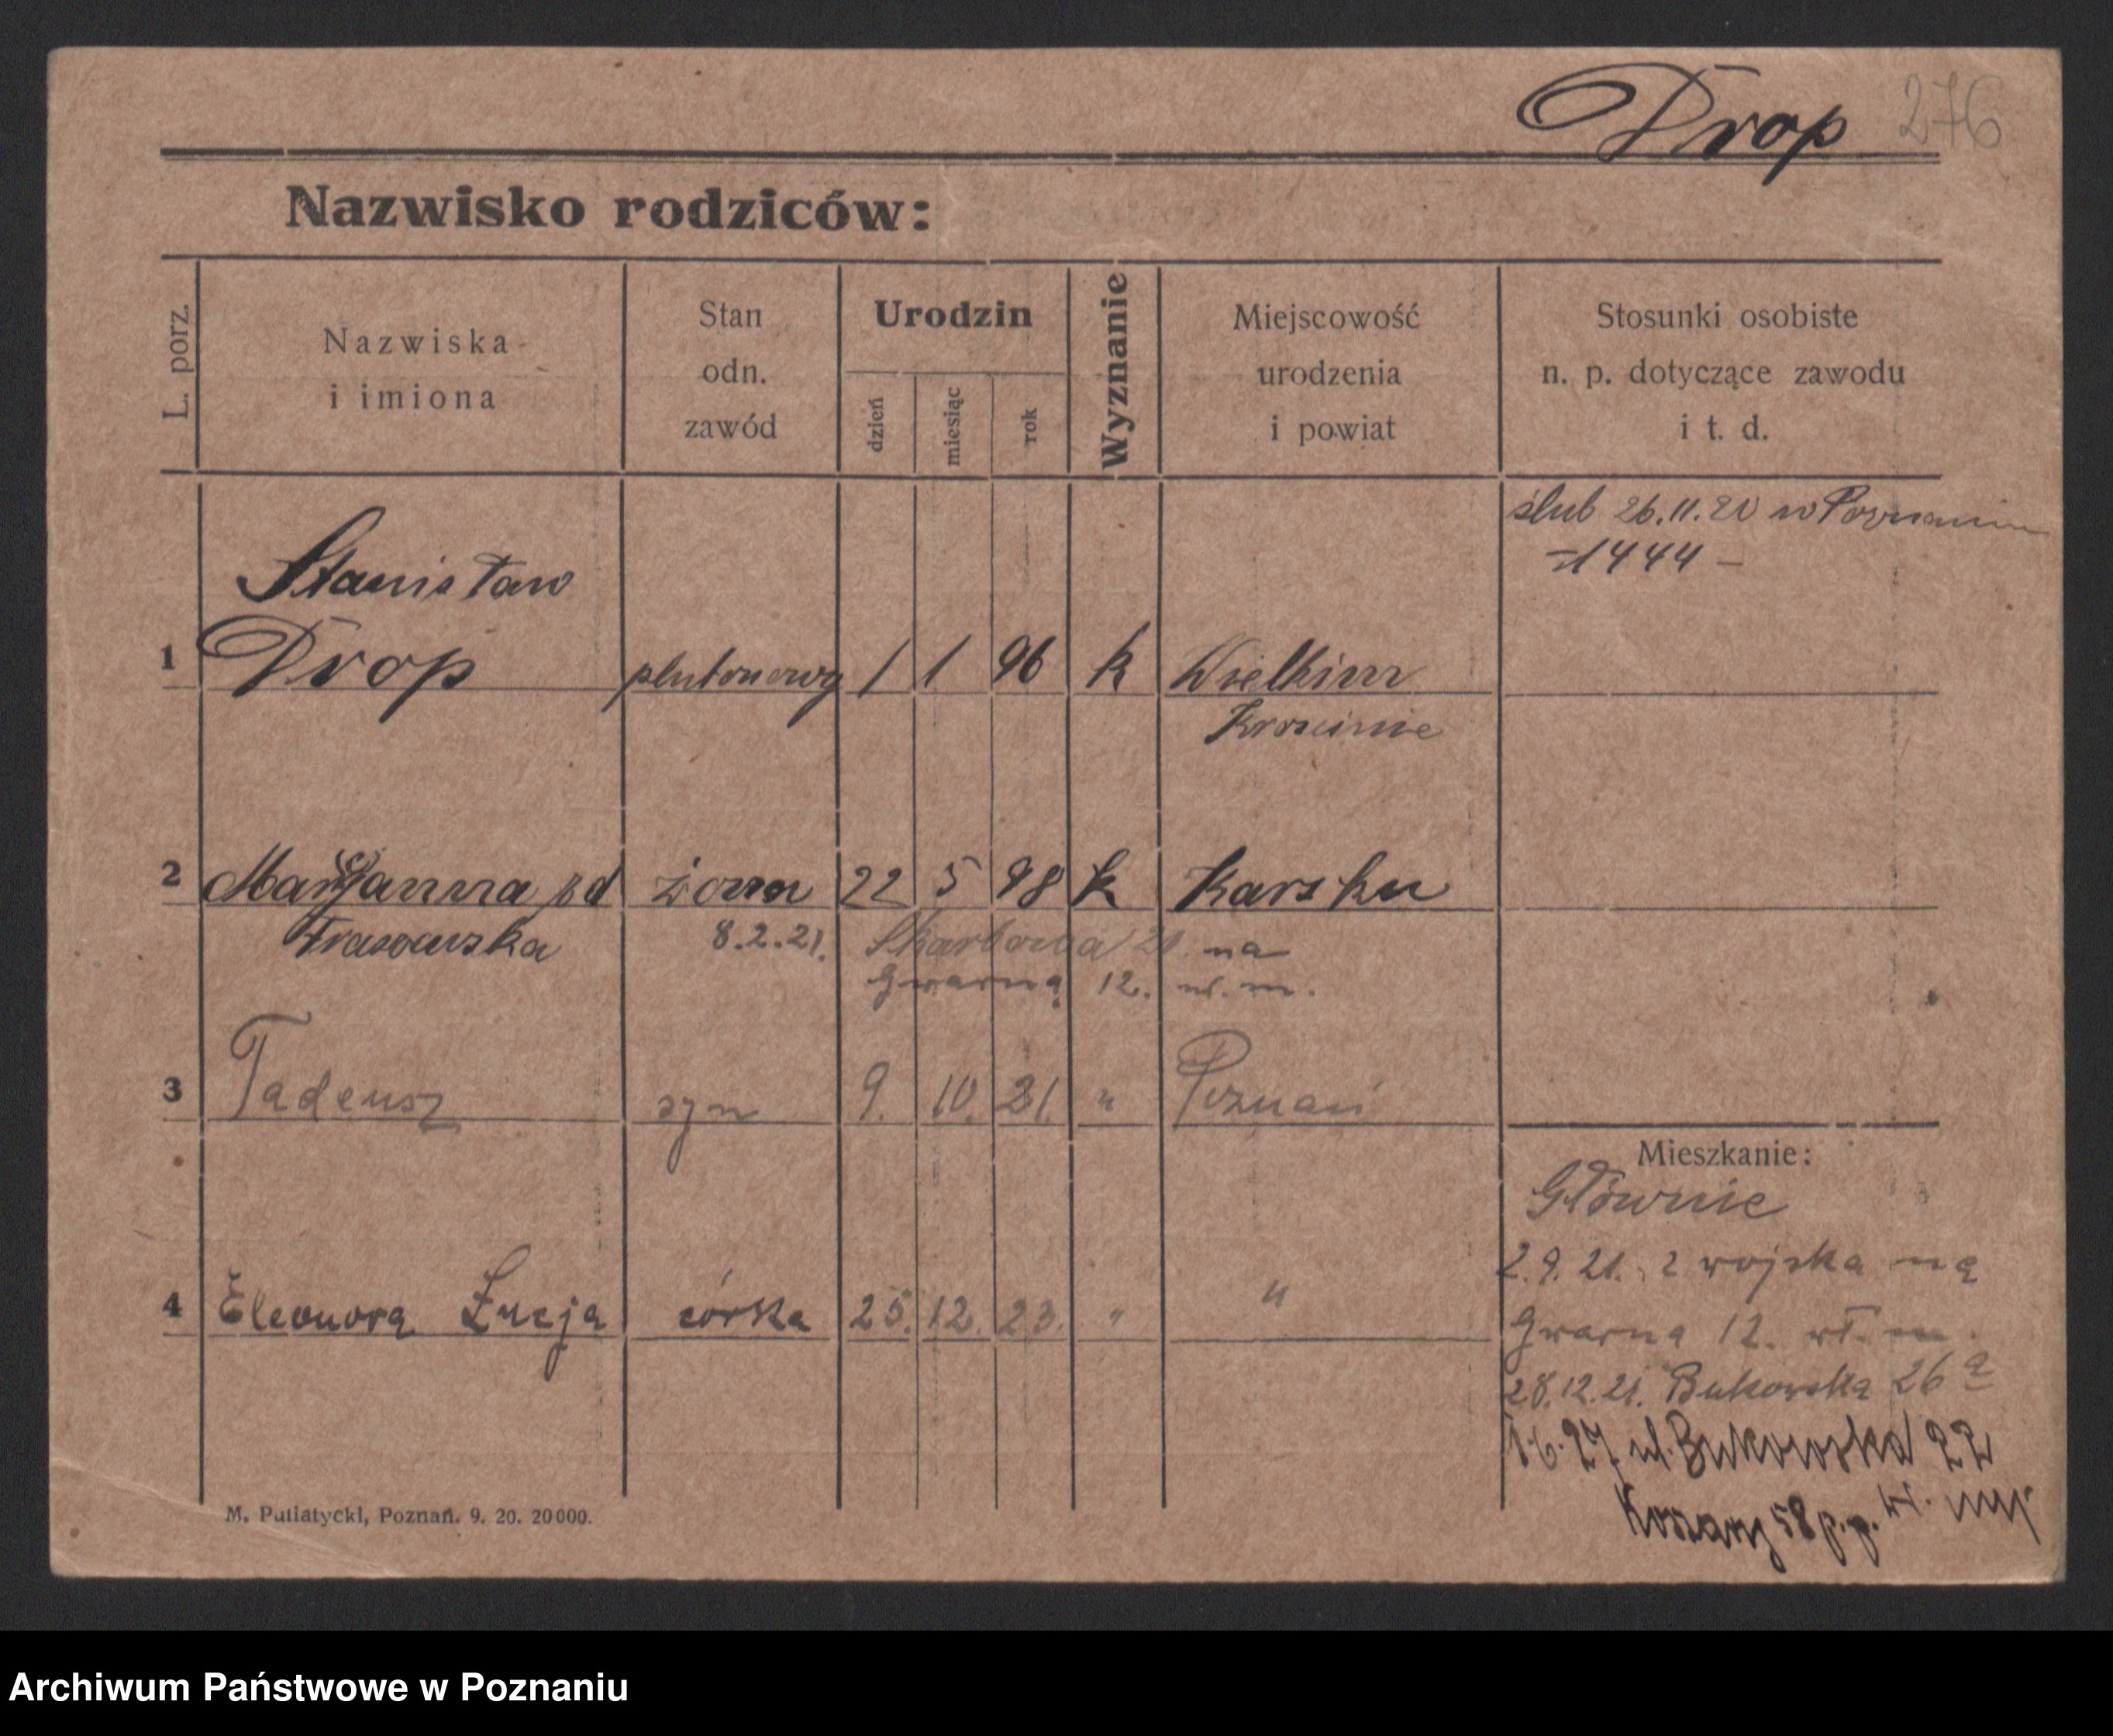 Drop 276
Nazwisko rodziców:
L. porz.
Nazwiska
i imiona
Stan
odn.
zawód
Urodzin
dzień
miesiąc
rok
Wyznanie
Miejscowość
urodzenia
i powiat
Stosunki osobiste
n. p. dotyczące zawodu
i t. d.
ślub 26.11.20 w Poznaniu
1444 –
Stanisław
1 Drop plutonowy 1 1 96 k Wielkim
2 Marjanna zd żona 22 5 98 k Karsku
8.2.21. Skarbowa 20 na
Gwarną 12. wł. m.
3 Tadeusz syn 9. 10. 21. " Poznań
Mieszkanie:
Głównie
2.9.21. z wojska na
4 Eleonora Łucja córka 25. 12. 23. " "
Gwarna 12. wł. m.
28.12.21. Bukowska 26a
1.6.27. ul. Bukowska 22
Koszary 58 p.p.
M. Putiatycki, Poznań. 9. 20. 20000.
Archiwum Państwowe w Poznaniu